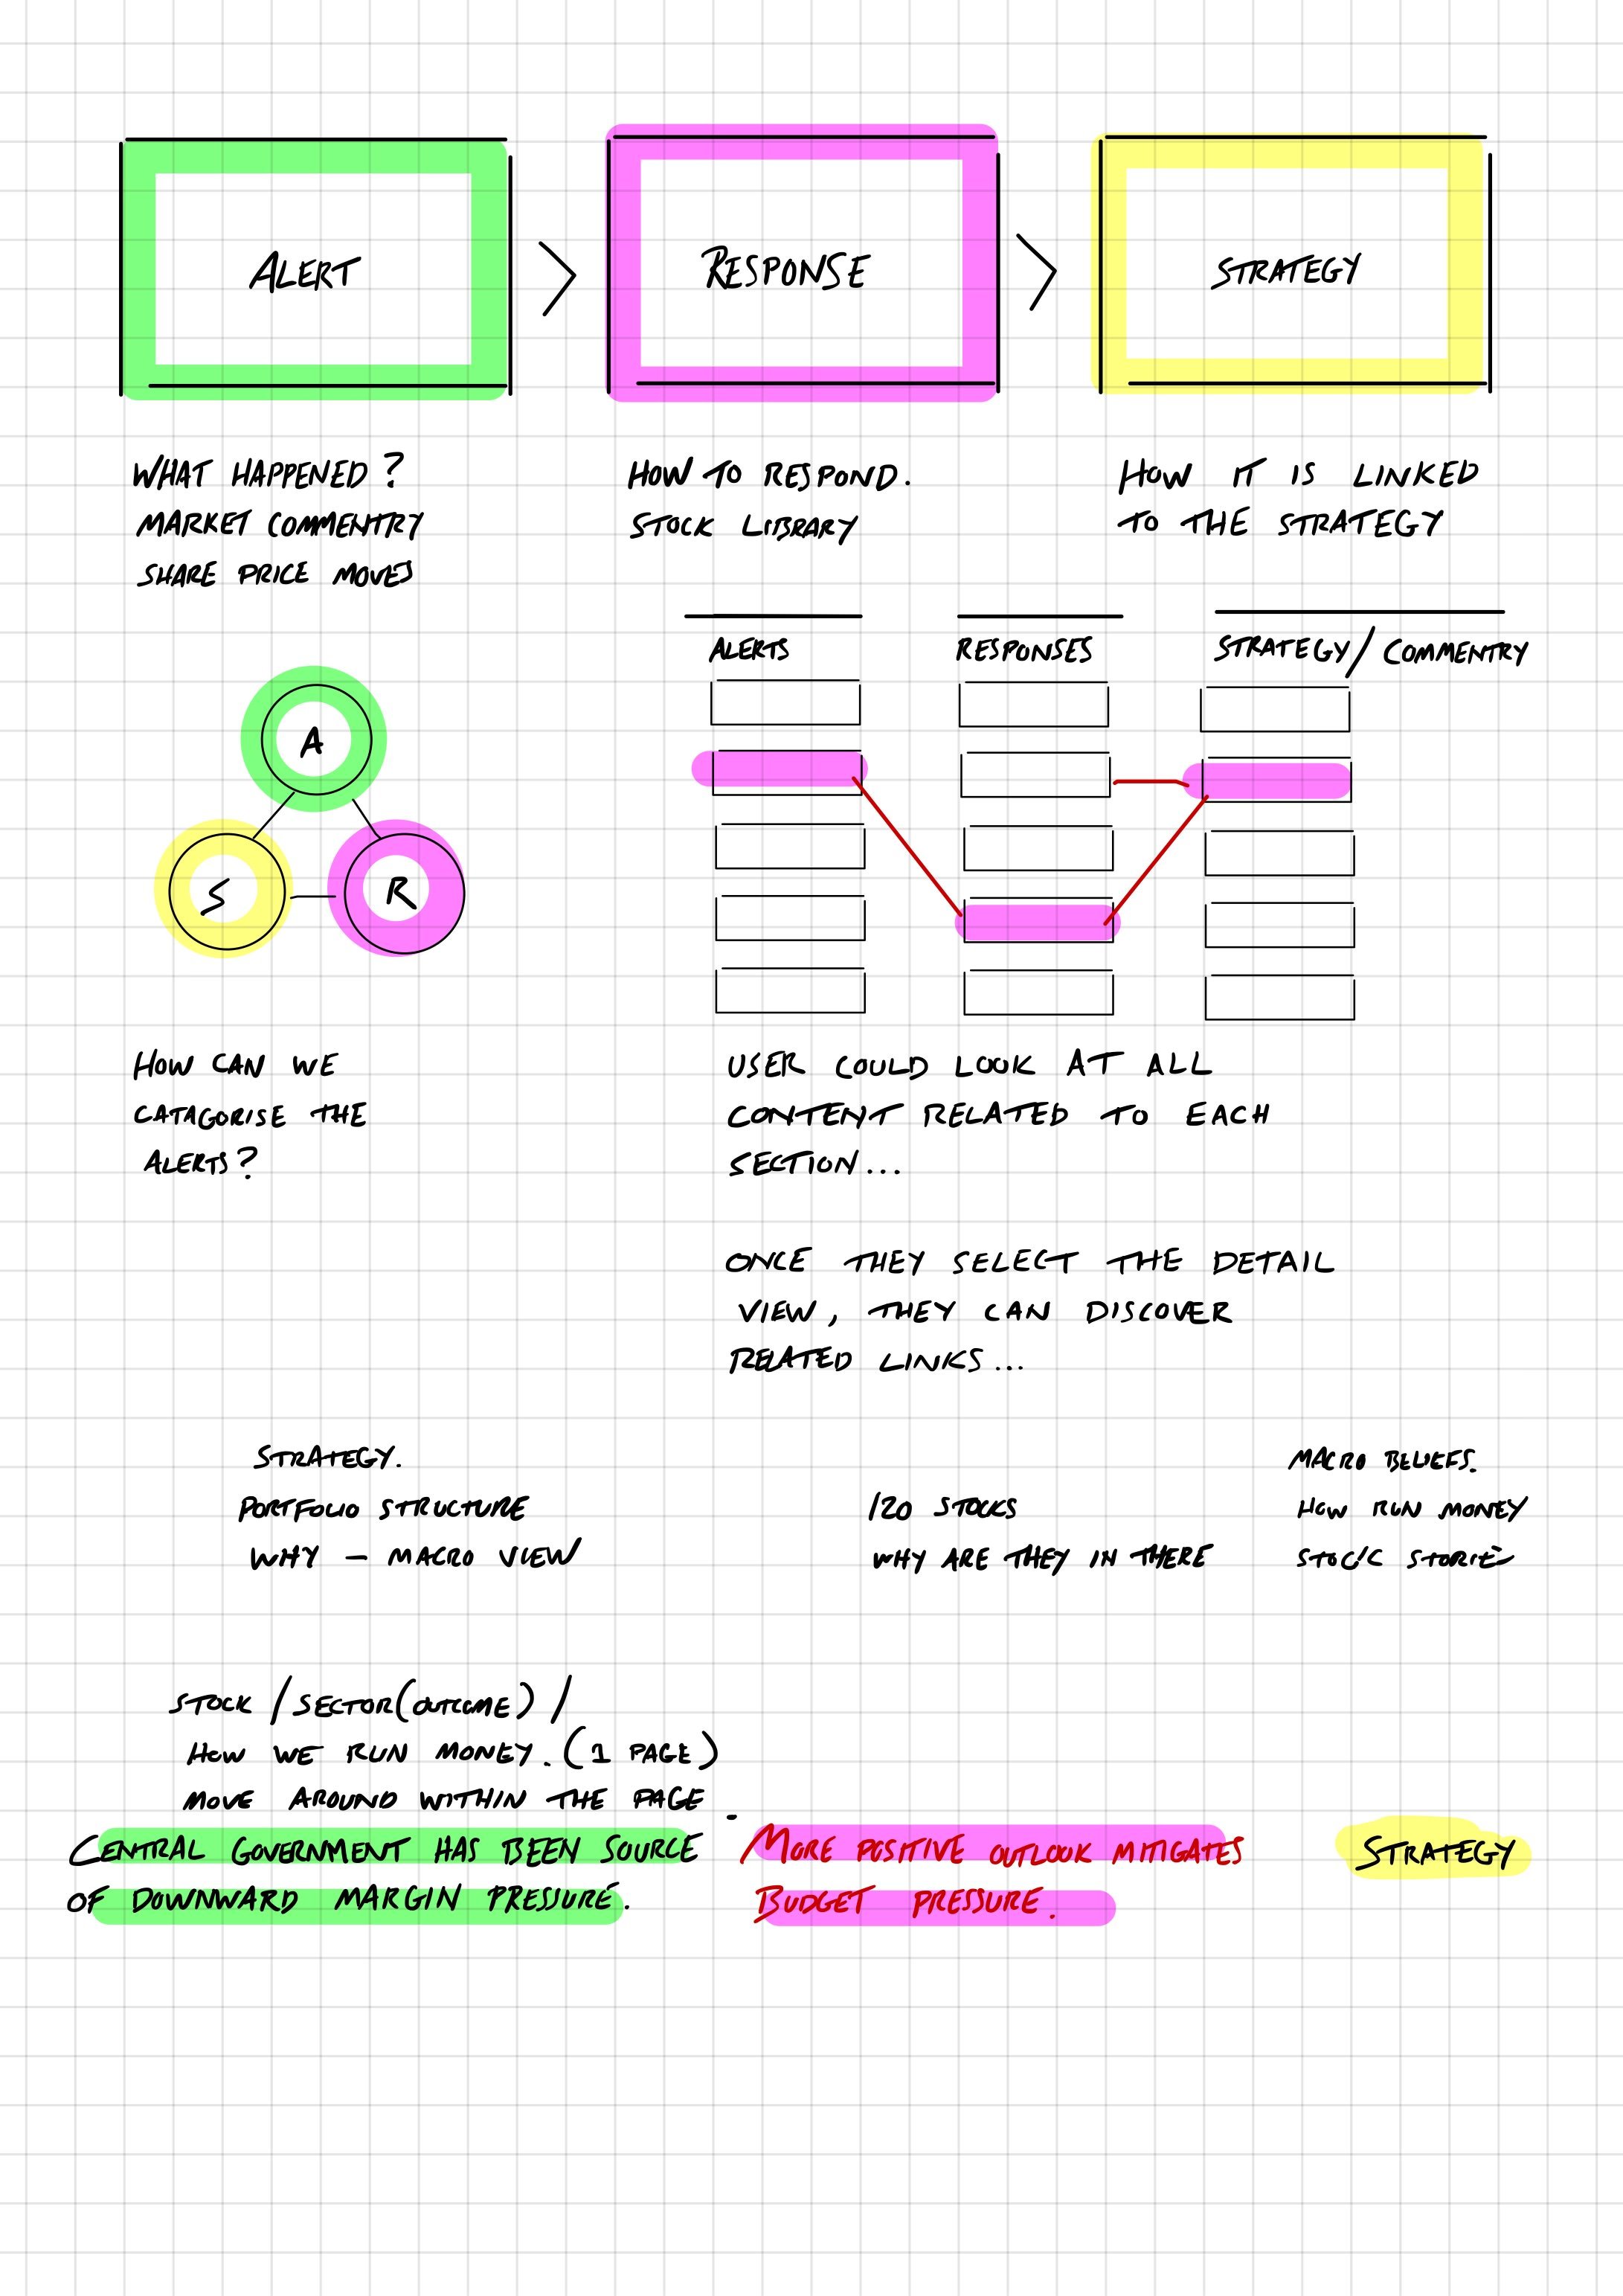 ALERT
RESPONSE
STRATEGY
WHAT HAPPENED?
MARKET COMMENTRY
SHARE PRICE MOVES
HOW TO RESPOND.
STOCK LIBRARY
HOW IT IS LINKED
TO THE STRATEGY
A
S
R
ALERTS
RESPONSES
STRATEGY / COMMENTRY
HOW CAN WE
CATAGORISE THE
ALERTS?
USER COULD LOOK AT ALL
CONTENT RELATED TO EACH
SECTION...
ONCE THEY SELECT THE DETAIL
VIEW, THEY CAN DISCOVER
RELATED LINKS...
STRATEGY.
PORTFOLIO STRUCTURE
WHY – MACRO VIEW
120 STOCKS
WHY ARE THEY IN THERE
MACRO BELIEFS.
HOW RUN MONEY
STOCK STORIES
STOCK / SECTOR (OUTCOME) /
HOW WE RUN MONEY. (1 PAGE)
MOVE AROUND WITHIN THE PAGE
CENTRAL GOVERNMENT HAS BEEN SOURCE
OF DOWNWARD MARGIN PRESSURE.
MORE POSITIVE OUTLOOK MITIGATES
BUDGET PRESSURE.
STRATEGY